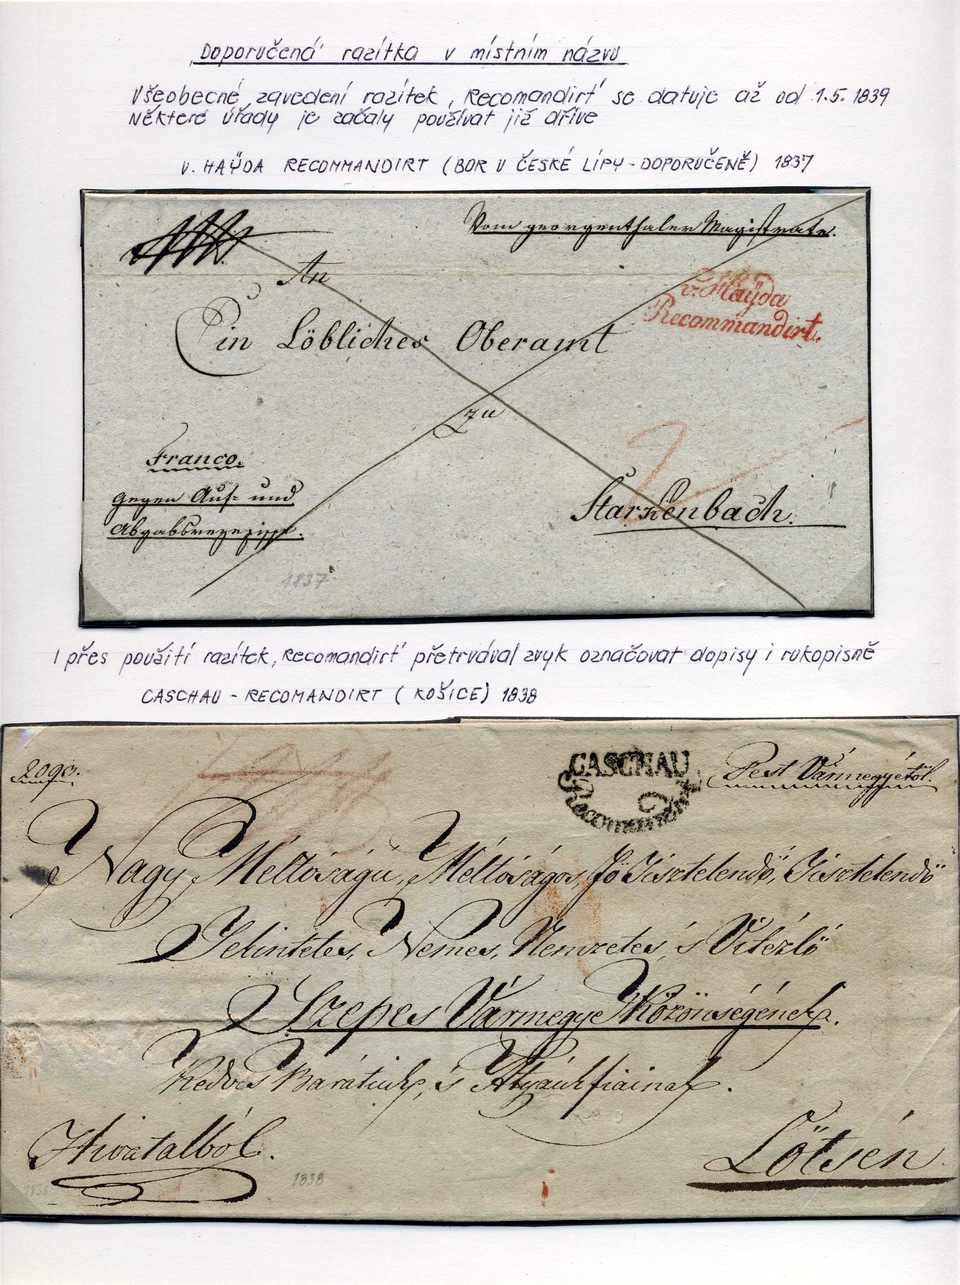 Doporučená razítka v místním názvu
Všeobecné zavedení razítek „Recomandirt“ se datuje až od 1.5. 1839
Některé úřady je začaly používat již dříve
V. HAŸDA RECOMMANDIRT (BOR U ČESKÉ LÍPY - DOPORUČENĚ) 1837
Vom georgenthaler Magistrate.
An
v. Haÿda
Recommandirt.
Ein Löbliches Oberamt
zu
Franco.
gegen Auf- und
Abgabsrezepisse.
Starkenbach.
1837
I přes použití razítek „Recomandirt“ přetrvával zvyk označovat dopisy i rukopisně
CASCHAU - RECOMANDIRT (KOŠICE) 1838
CASCHAU
Recomandirt
Pest Vármegyétől.
Nagy Méltóságú, Méltóságos, Fő Tisztelendő, Tisztelendő
Tekintetes, Nemes, Nemzetes, s Vitézlő
Szepes Vármegye Közönségének.
Kedves Barátink, s Atyánkfiainak.
Hivatalból.
1838
Lőtsén